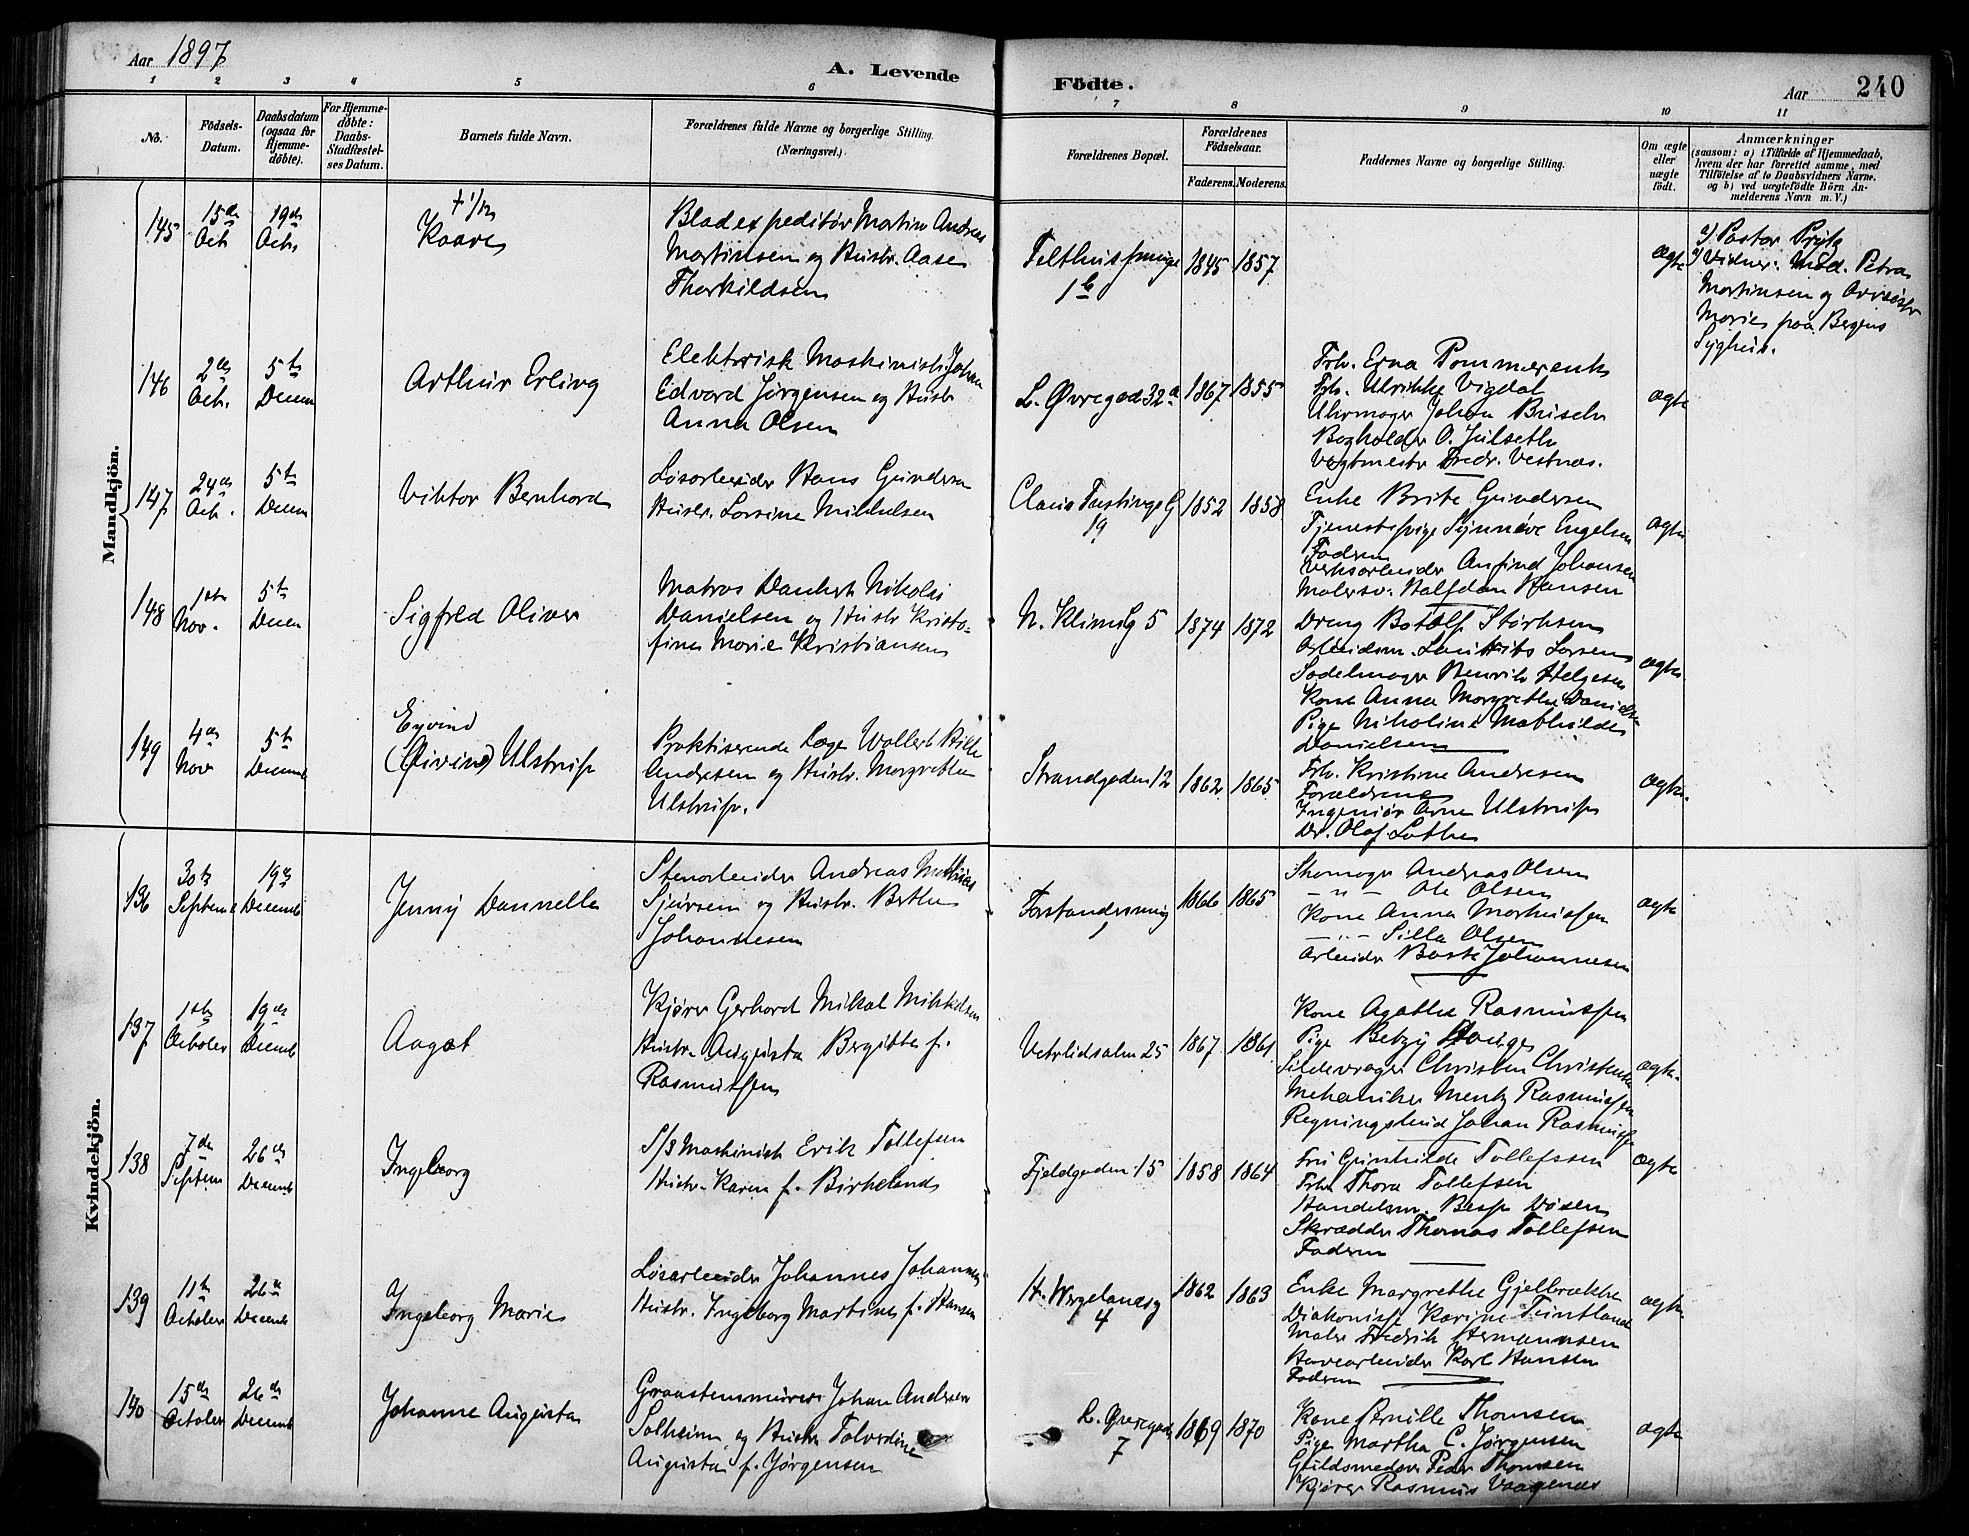 Aar 1897
A. Levende
Födte.
Aar
240
1 2 3 4 5 6 7 8 9 10 11
No.
Födsels-
Datum.
Daabsdatum
(ogsaa for
Hjemme-
döbte).
For Hjemme-
döbte:
Daabs-
Stadfæstel-
ses Datum.
Barnets fulde Navn.
Forældrenes fulde Navne og borgerlige Stilling.
(Næringsvei.)
Forældrenes Bopæl.
Forældrenes
Födselsaar.
Faderens. Moderens.
Faddernes Navne og borgerlige Stilling.
Om ægte
eller
uægte
födt.
Anmærkninger
(saasom: a) i Tilfælde af Hjemmedaab,
hvem der har forrettet samme, med
Tilföielse af to Daabsvidners Navne.
og b) ved uægtefödte Börn An-
melderens Navn m. V.)
Mandkjön.
145
15de
Oct.
19de
Oct.
Kaare
Bladexpeditør Martin Andreas
Martinsen og Hustr. Aase
Thorkildsen
1b
1845 1857
ægte
Pastor
Vidner: Petra
Martinsen og
Marie paa Bergens
Syghus.
146
2de
Oct.
5te
Decem
Arthur Erling
Elektrisk Maskinist Johan
Edvard Jørgensen og Hustr
Anna Olsen
L. Øvregad 32a
1867 1855
Frk. Erna Pommerenk
Frk. Ulrikke Vigdal
Uhrmager Johan
Bogholder O. Julseth
Vegtmestr Fredr. Vestnæs.
ægte
147
24de
Oct.
5te
Decem
Viktor Bernhard
Løsarbeider Hans Gundersen
Hustr. Lorsine Mikkelsen
19
1852 1858
Enke Brite Gundersen
Tjenestepige Synnøve Engelsen
Faderen
Verksarbeider Anfind Johansen
Malersv. Halfdan Hansen
ægte
148
1ste
Nov.
5te
Decem
Sigfred Oliver
Matros Nikolai
Danielsen og Hustr Kristo-
fine Marie Kristiansen
5
1874 1872
Dreng Botolf Størksen
Arbeidsm. Lauritz Larsen
Sadelmager Henrik Helgesen
Kone Anna Margrethe Daniels
Pige Nikoline Mathilde
Danielsen
ægte
149
4de
Nov
5te
Decemb
Eyvind
(Øivind) Ulstrup
Praktiserende Læge Wollert Hille
Andresen og Hustr. Margrethe
Ulstrup.
Strandgaden 12
1862 1865
Frk. Kristine Andresen
Forældrene
Ingeniør Arne Ulstrup
Dr. Olaf Lothe
ægte.
Kvindekjön.
136
30te
Septem
19de
Decemb
Jenny Dannella
Stenarbeider Andreas Mathias
Sjursen og Hustr. Berthe
Johannesen
Forstandersmug
1
1866 1865
Skomager Andreas Olsen
— " — Ole Olsen
Kone Anna
— " — Silla Olsen
Arbeider Johannesen
ægte
137
1ste
October
19de
Decemb
Aagot
Kjører Gerhard Mikal Mikkelsen
Hustr. Augusta Bergitte f.
Rasmussen
Vetrlidsalm 25
1867 1861
Kone Agathe Rasmussen
Pige Betzy Hauge
Sildevrager Christen Christensen
Mekaniker Mentz Rasmussen
Regningsbud Johan Rasmussen
ægte.
138
7de
Septem
26de
Decemb
Ingeborg
S/S Maskinist Erik Tollefsen
Hustr. Karen f. Birkeland
Fjeldgaden 15
1858 1864
Fru Gunhilde Tollefssen
Frk Thora Tollefsen
Handelsm.
Skrædder Thomas Tollefsen
Faderen
ægte
139
11te
October
26de
Decemb
Ingeborg Marie
Løsarbeider Johannes Johannesen
Hustr. Ingeborg Martine f. Hansen
H. Wergelandsg
4
1862 1863
Enke Margrethe Gjelbrække
Diakonisse Karine
Maler Fredrik Hermannsen
Havearbeider Karl Hansen
Faderen
ægte.
140
15de
October
26de
Decemb
Johanne Augusta
Graastensmurer Johan Andersen
Solheim og Hustr.
Augusta f. Jørgensen
L. Øvregade
7
1869 1870
Kone Pernille Thomsen
Pige Martha C. Jørgensen
Guldsmedsv Peder Thomsen
Kjører Rasmus Vaagenæs
ægte